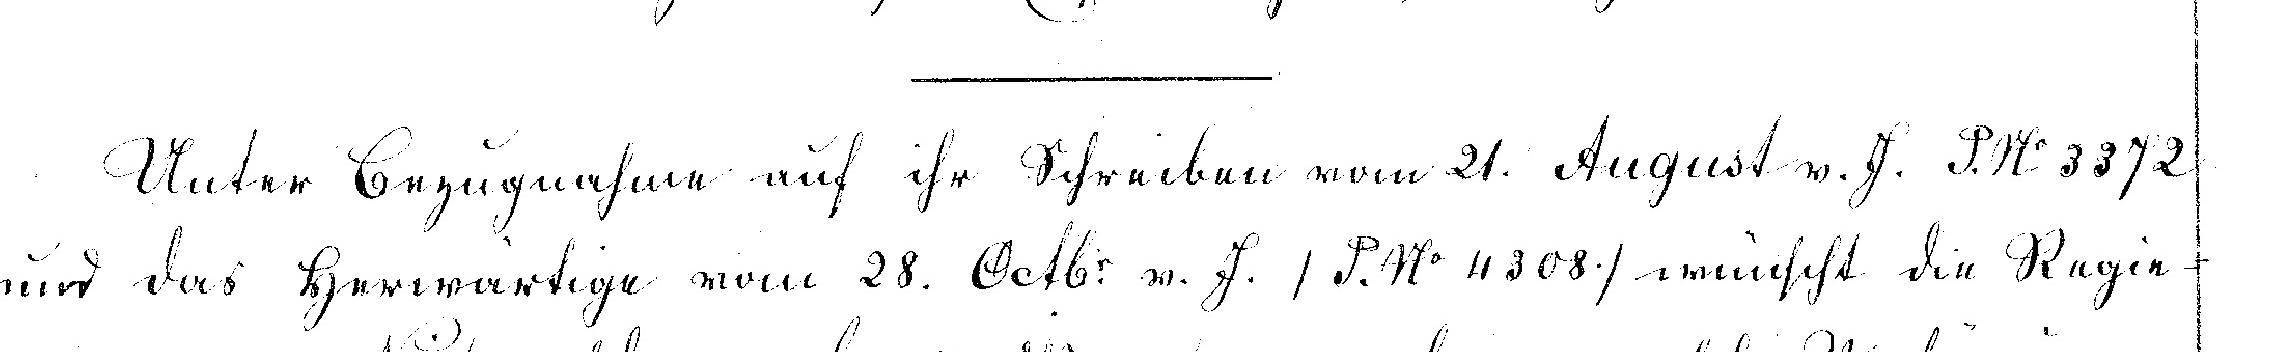 Unter Bezugnahme auf ihr Schreiben vom 21. August v. J. P. No 3372
und das Herwärtige vom 28. Octbr v. J. / P. No 4308./ wünscht die Regie-